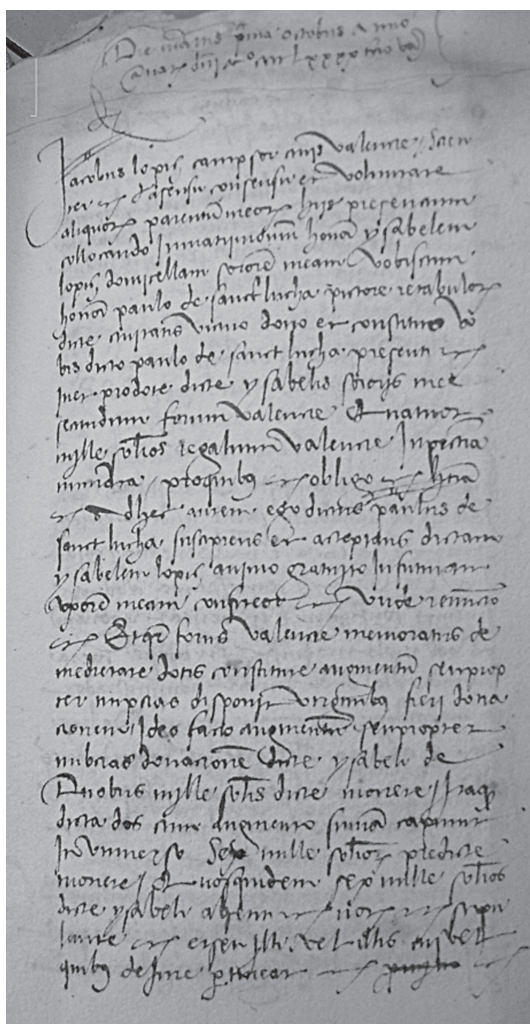 Die martis prima octobris anno
a nat dni M cccc lxxxx
Jacobus lopis campsor civis valencie Scien
ter &c de assensu consensu et voluntate
aliquor parentum meor hijs presentium
collocando in matrimonium honor ysabelem
lopis domicellam sororem meam vobiscum
honor paulo de sanct lucha pictore retabulor
dicte civitatis vicino dono et constituo vo
bis dicto paulo de sanct lucha presenti &c
inter pro dote dicte ysabelis sororis mee
secundum forum valencie Quatuor
mille solidos regalium valencie In pecunia
numerata pro quibus &c obligo &c
&c Ad hec autem ego dictus paulus de
sanct lucha suscipiens et acceptans dictam
ysabelem lopis animo gratuito In futuram
uxorem meam confiteor &c Unde renuncio
&c Et quia forus valencie memoratis de
medietate dotis constitute augmentum seu prop
ter nupcias disponit virginibus fieri dona
cionem Ideo facio augmentum seu propter
nubcias donacionem dicte ysabeli de
Duobus mille solidis dicte monete Itaque
dicta dos cum augmento summam capiunt
In universo Sex mille solidor predicte
monete Quosquidem sex mille solidos
dicte ysabeli absenti &c not &c stipu
lante &c et seu illi vel illis cui vel
quibus de Jure pertineat &c